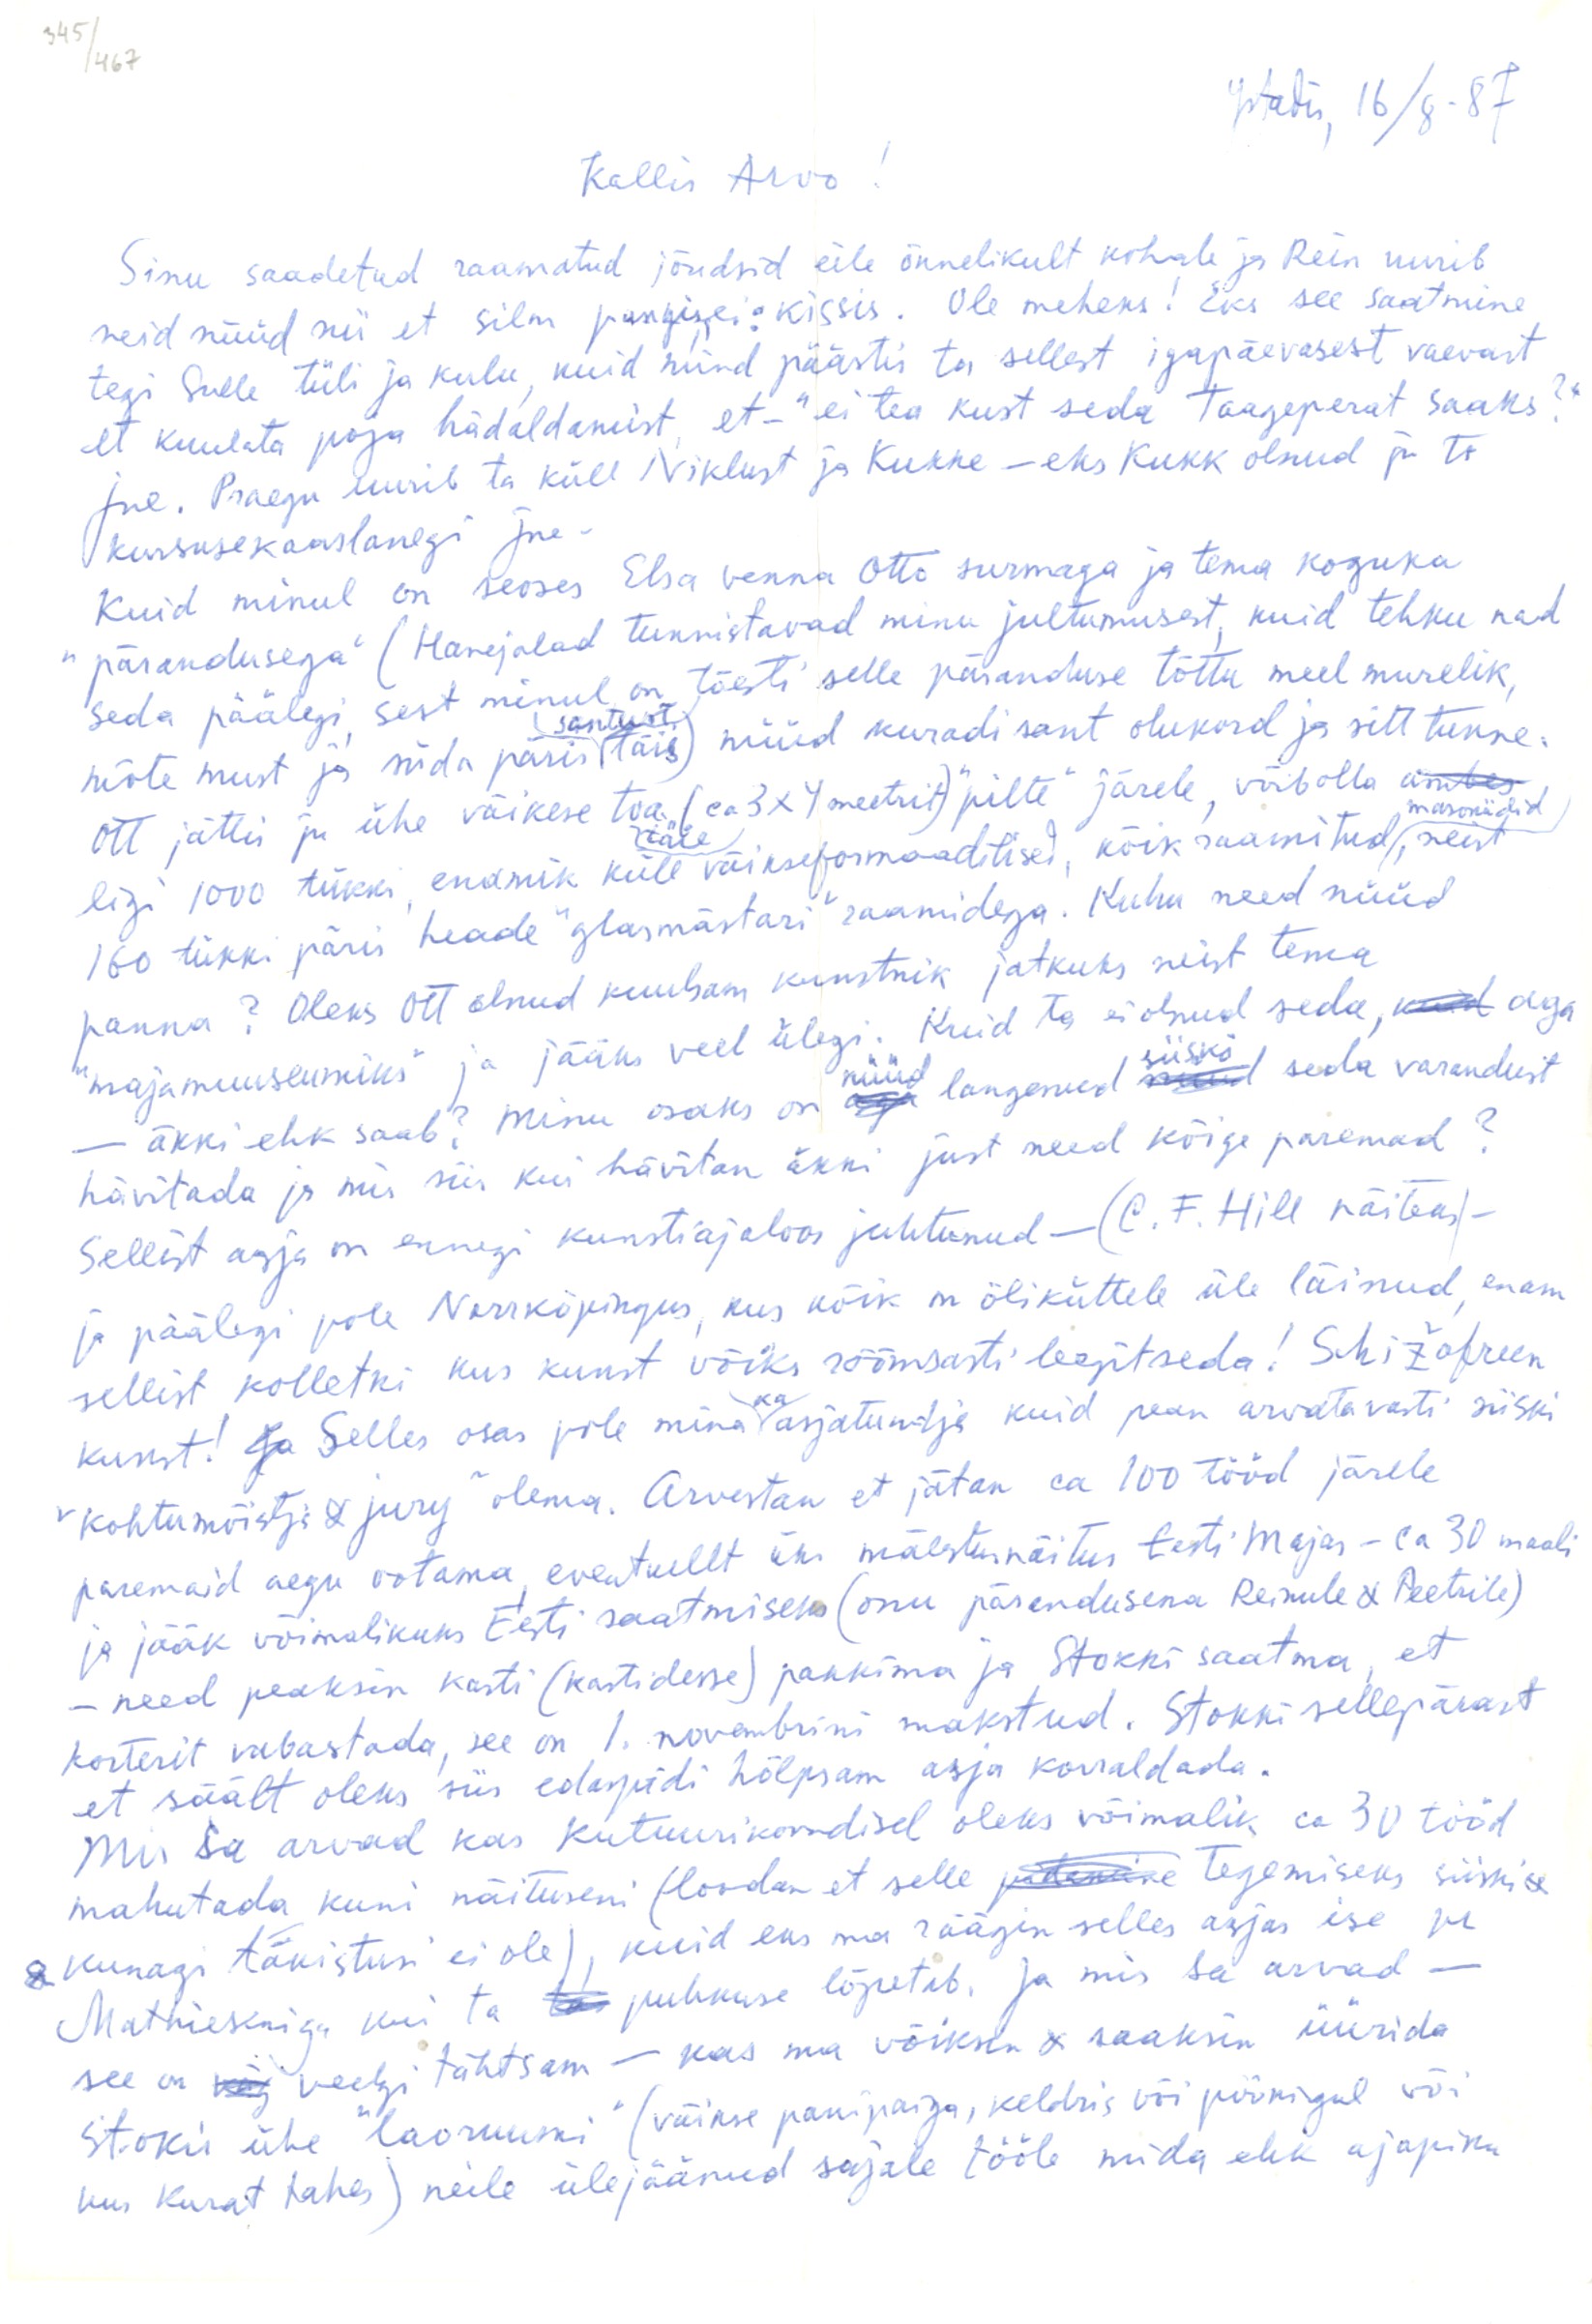 345/467
Ystadis, 16/8-87
Kallis Arvo!
Sinu saadetud raamatud jõudsid eile õnnelikult kohale ja Rein uurib
neid nüüd nii et silm pungis, ei: kissis. Ole meheks! Eks see saatmine
tegi Sulle tüli ja kulu, kuid mind päästis ta sellest igapäevasest vaevast
et kuulata poja hädaldamist, et - "ei tea kust seda Taageperat saaks?"
jne. Praegu uurib ta küll Niklust ja Kukke - eks Kukk olnud ju ta
kursusekaaslanegi jne -
Kuid minul on seoses Elsa venna Otto surmaga ja tema koguka
"pärandusega" (Hanejalad tunnistavad minu jultumusest, kuid tehku nad
seda päälegi, sest minul on tõesti selle päranduse tõttu meel murelik,
mõte must ja süda päris (santust) täis) nüüd kuradi sant olukord ja sitt tunne.
Ott jättis ju ühe väikese toa (ca 3x4 meetrit) "pilte" järele, võibolla umbes
ligi 1000 tükki, enamik küll väikseformaadilised, kõik raamitud, neist
160 tükki päris heade "glasmästari" raamidega. Kuhu need nüüd
panna? Oleks Ott olnud kuulsam kunstnik jatkuks neist tema
"majamuuseumiks" ja jääks veel ülegi. Kuid ta ei olnud seda, kuid aga
- äkki ehk saab? Minu osaks on nüüd langenud siiski seda varandust
hävitada ja mis siis kui hävitan äkki just need kõige paremad?
Sellist asja on ennegi kunstiajaloos juhtunud - (C. F. Hill näiteks) -
ja päälegi pole Norrköpingus, kus kõik on õliküttele üle läinud, enam
sellist kolletki kus kunst võiks rõõmsasti leegitseda! Schižofreen
kunst! Ja Selles osas pole mina ka asjatundja kuid pean arvatavasti siiski
"kohtumõistja & jury" olema. Arvestan et jätan ca 100 tööd järele
paremaid aegu ootama, eventuellt üks mälestusnäitus Eesti Majas - ca 30 maali
ja jääk võimalikuks Eesti saatmiseks (onu pärandusena Reinule & Peetrile)
- need peaksin kasti (kastidesse) pakkima ja Stokki saatma, et
korterit vabastada, see on 1. novembrini makstud. Stokki sellepärast
et säält oleks siis edaspidi hõlpsam asja korraldada.
Mis Sa arvad kas Kutuurikondisel oleks võimalik ca 30 tööd
mahutada kuni näituseni (loodan et selle tegemiseks siiski
kunagi takistusi ei ole), kuid eks ma räägin selles asjas ise ju
Mathieseniga kui ta puhkuse lõpetab. Ja mis Sa arvad -
see on veelgi tähtsam - kas ma võiksin & saaksin üürida
Stokis ühe "laoruumi" (väikse panipaiga, keldris või pööningul või
kus kurat tahes) neile ülejäänud sajale tööle mida ehk ajapikku